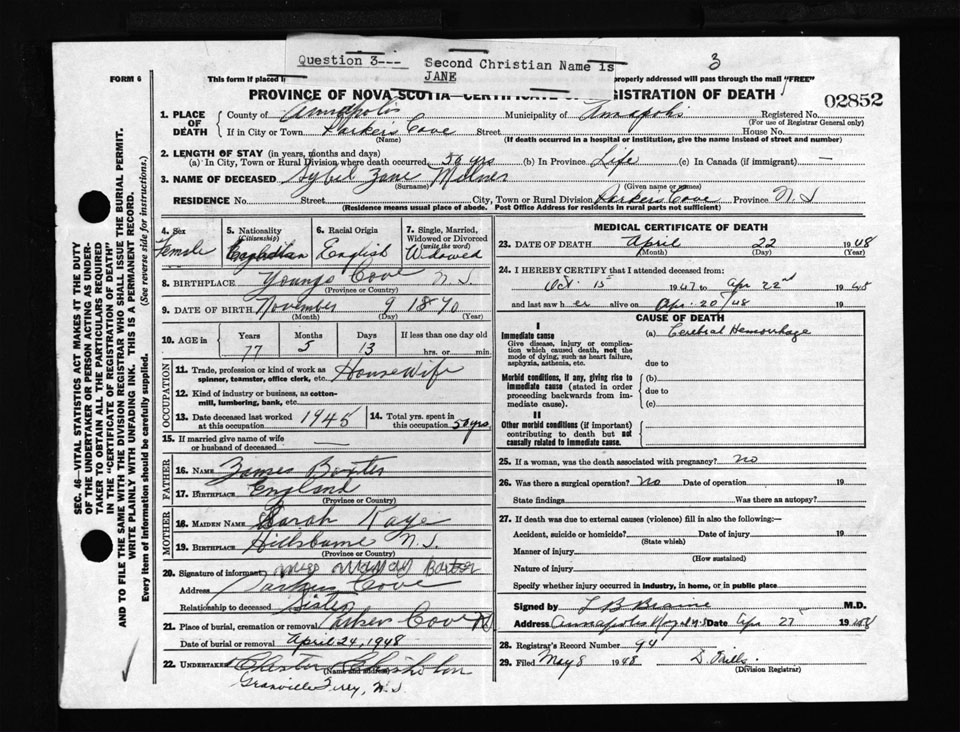 Question 3--- Second Christian Name is
JANE
3
FORM 6
This form if placed i
properly addressed will pass through the mail "FREE"
PROVINCE OF NOVA SCOTIA—CERTIFICATE OF REGISTRATION OF DEATH
02852
1. PLACE OF DEATH
County of Annapolis Municipality of Annapolis Registered No.
(For use of Registrar General only)
If in City or Town Parkers Cove Street House No.
(Name) (If death occurred in a hospital or institution, give the name instead of street and number)
2. LENGTH OF STAY (in years, months and days)
(a) In City, Town or Rural Division where death occurred, 50 yrs (b) In Province Life (c) In Canada (if immigrant) —
3. NAME OF DECEASED Sybil Zane Milner
(Surname) (Given name or names)
RESIDENCE No. Street City, Town or Rural Division Parkers Cove Province N.S.
(Residence means usual place of abode. Post Office Address for residents in rural parts not sufficient)
4. Sex Female
5. Nationality (Citizenship) Canadian
6. Racial Origin English
7. Single, Married, Widowed or Divorced (write the word) Widowed
8. BIRTHPLACE Youngs Cove N.S.
(Province or Country)
9. DATE OF BIRTH November 9 1870
(Month) (Day) (Year)
10. AGE in Years Months Days If less than one day old
77 5 13 hrs. or min.
OCCUPATION
11. Trade, profession or kind of work as spinner, teamster, office clerk, etc. House Wife
12. Kind of industry or business, as cotton-mill, lumbering, bank, etc.
13. Date deceased last worked at this occupation 1945
14. Total yrs. spent in this occupation 50 yrs
15. If married give name of wife or husband of deceased —
FATHER
16. NAME James Baxter
17. BIRTHPLACE England
(Province or Country)
MOTHER
18. MAIDEN NAME Sarah Kaye
19. BIRTHPLACE Hillsburne N.S.
(Province or Country)
20. Signature of informant Miss Baxter
Address Parkers Cove
Relationship to deceased Sister
21. Place of burial, cremation or removal Parkers Cove N.S.
Date of burial or removal April 24, 1948
22. UNDERTAKER Chisholm
(Name and address)
Granville Ferry, N.S.
MEDICAL CERTIFICATE OF DEATH
23. DATE OF DEATH April 22 1948
(Month) (Day) (Year)
24. I HEREBY CERTIFY that I attended deceased from:
Oct. 15 1947 to Apr 22nd 1948
and last saw h er alive on Apr. 20/48 19
CAUSE OF DEATH
I
Immediate cause
Give disease, injury or complication which caused death, not the mode of dying, such as heart failure, asphyxia, asthenia, etc.
(a) Cerebral Hemorrhage
due to
Morbid conditions, if any, giving rise to immediate cause (stated in order proceeding backwards from immediate cause).
(b)
due to
(c)
II
Other morbid conditions (if important) contributing to death but not causally related to immediate cause.
25. If a woman, was the death associated with pregnancy? No
26. Was there a surgical operation? No Date of operation 19
State findings Was there an autopsy?
27. If death was due to external causes (violence) fill in also the following:—
Accident, suicide or homicide? Date of injury 19
(State which)
Manner of injury
(How sustained)
Nature of injury
Specify whether injury occurred in industry, in home, or in public place
Signed by L B Braine M.D.
Address Annapolis Royal N.S. Date Apr 25 1948
28. Registrar's Record Number 94
29. Filed May 8 1948
(Division Registrar)
SEC. 46—VITAL STATISTICS ACT MAKES IT THE DUTY
OF THE UNDERTAKER OR PERSON ACTING AS UNDER-
TAKER TO OBTAIN ALL THE PARTICULARS REQUIRED
IN THE "CERTIFICATE OF REGISTRATION OF DEATH"
AND TO FILE THE SAME WITH THE DIVISION REGISTRAR WHO SHALL ISSUE THE BURIAL PERMIT.
WRITE PLAINLY WITH UNFADING INK. THIS IS A PERMANENT RECORD.
Every item of Information should be carefully supplied. (See reverse side for instructions.)